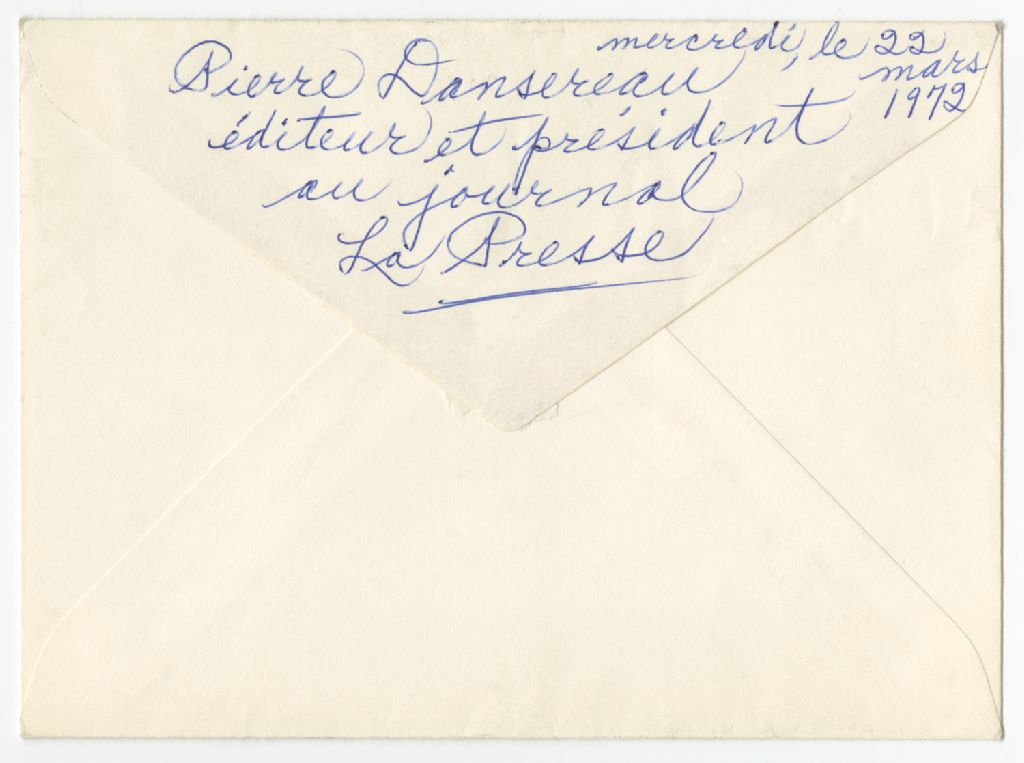 mercredi, le 22
mars
1972
Pierre Dansereau
éditeur et président
au journal
La Presse